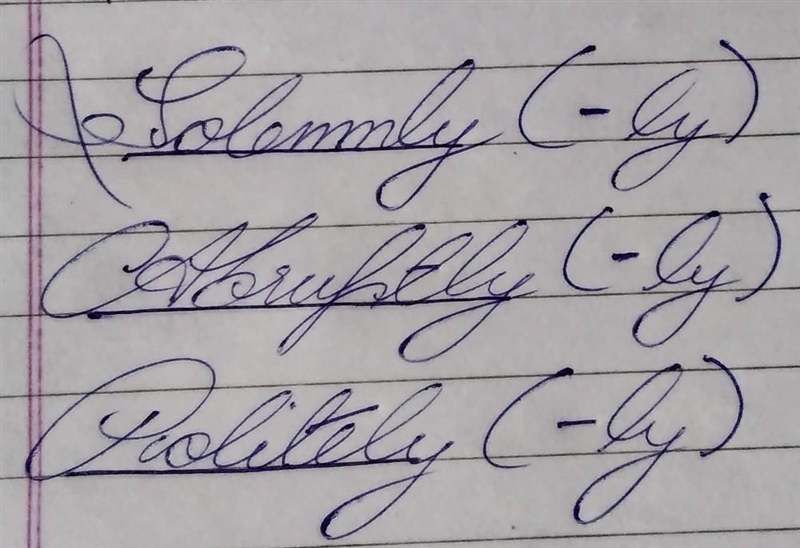 Solemnly (-ly)
Abruptly (-ly)
Politely (-ly)